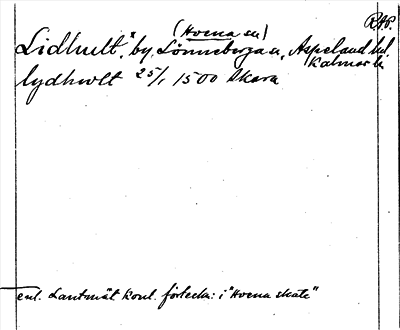 (Hvena sn)
R.A.P.
Lidhult,* by, Lönneberga sn, Aspeland hd.
Kalmar län
lydhwlt 25/1 1500 Skara
enl. Lantmät. kont. förteckn: i "Hvena skate"